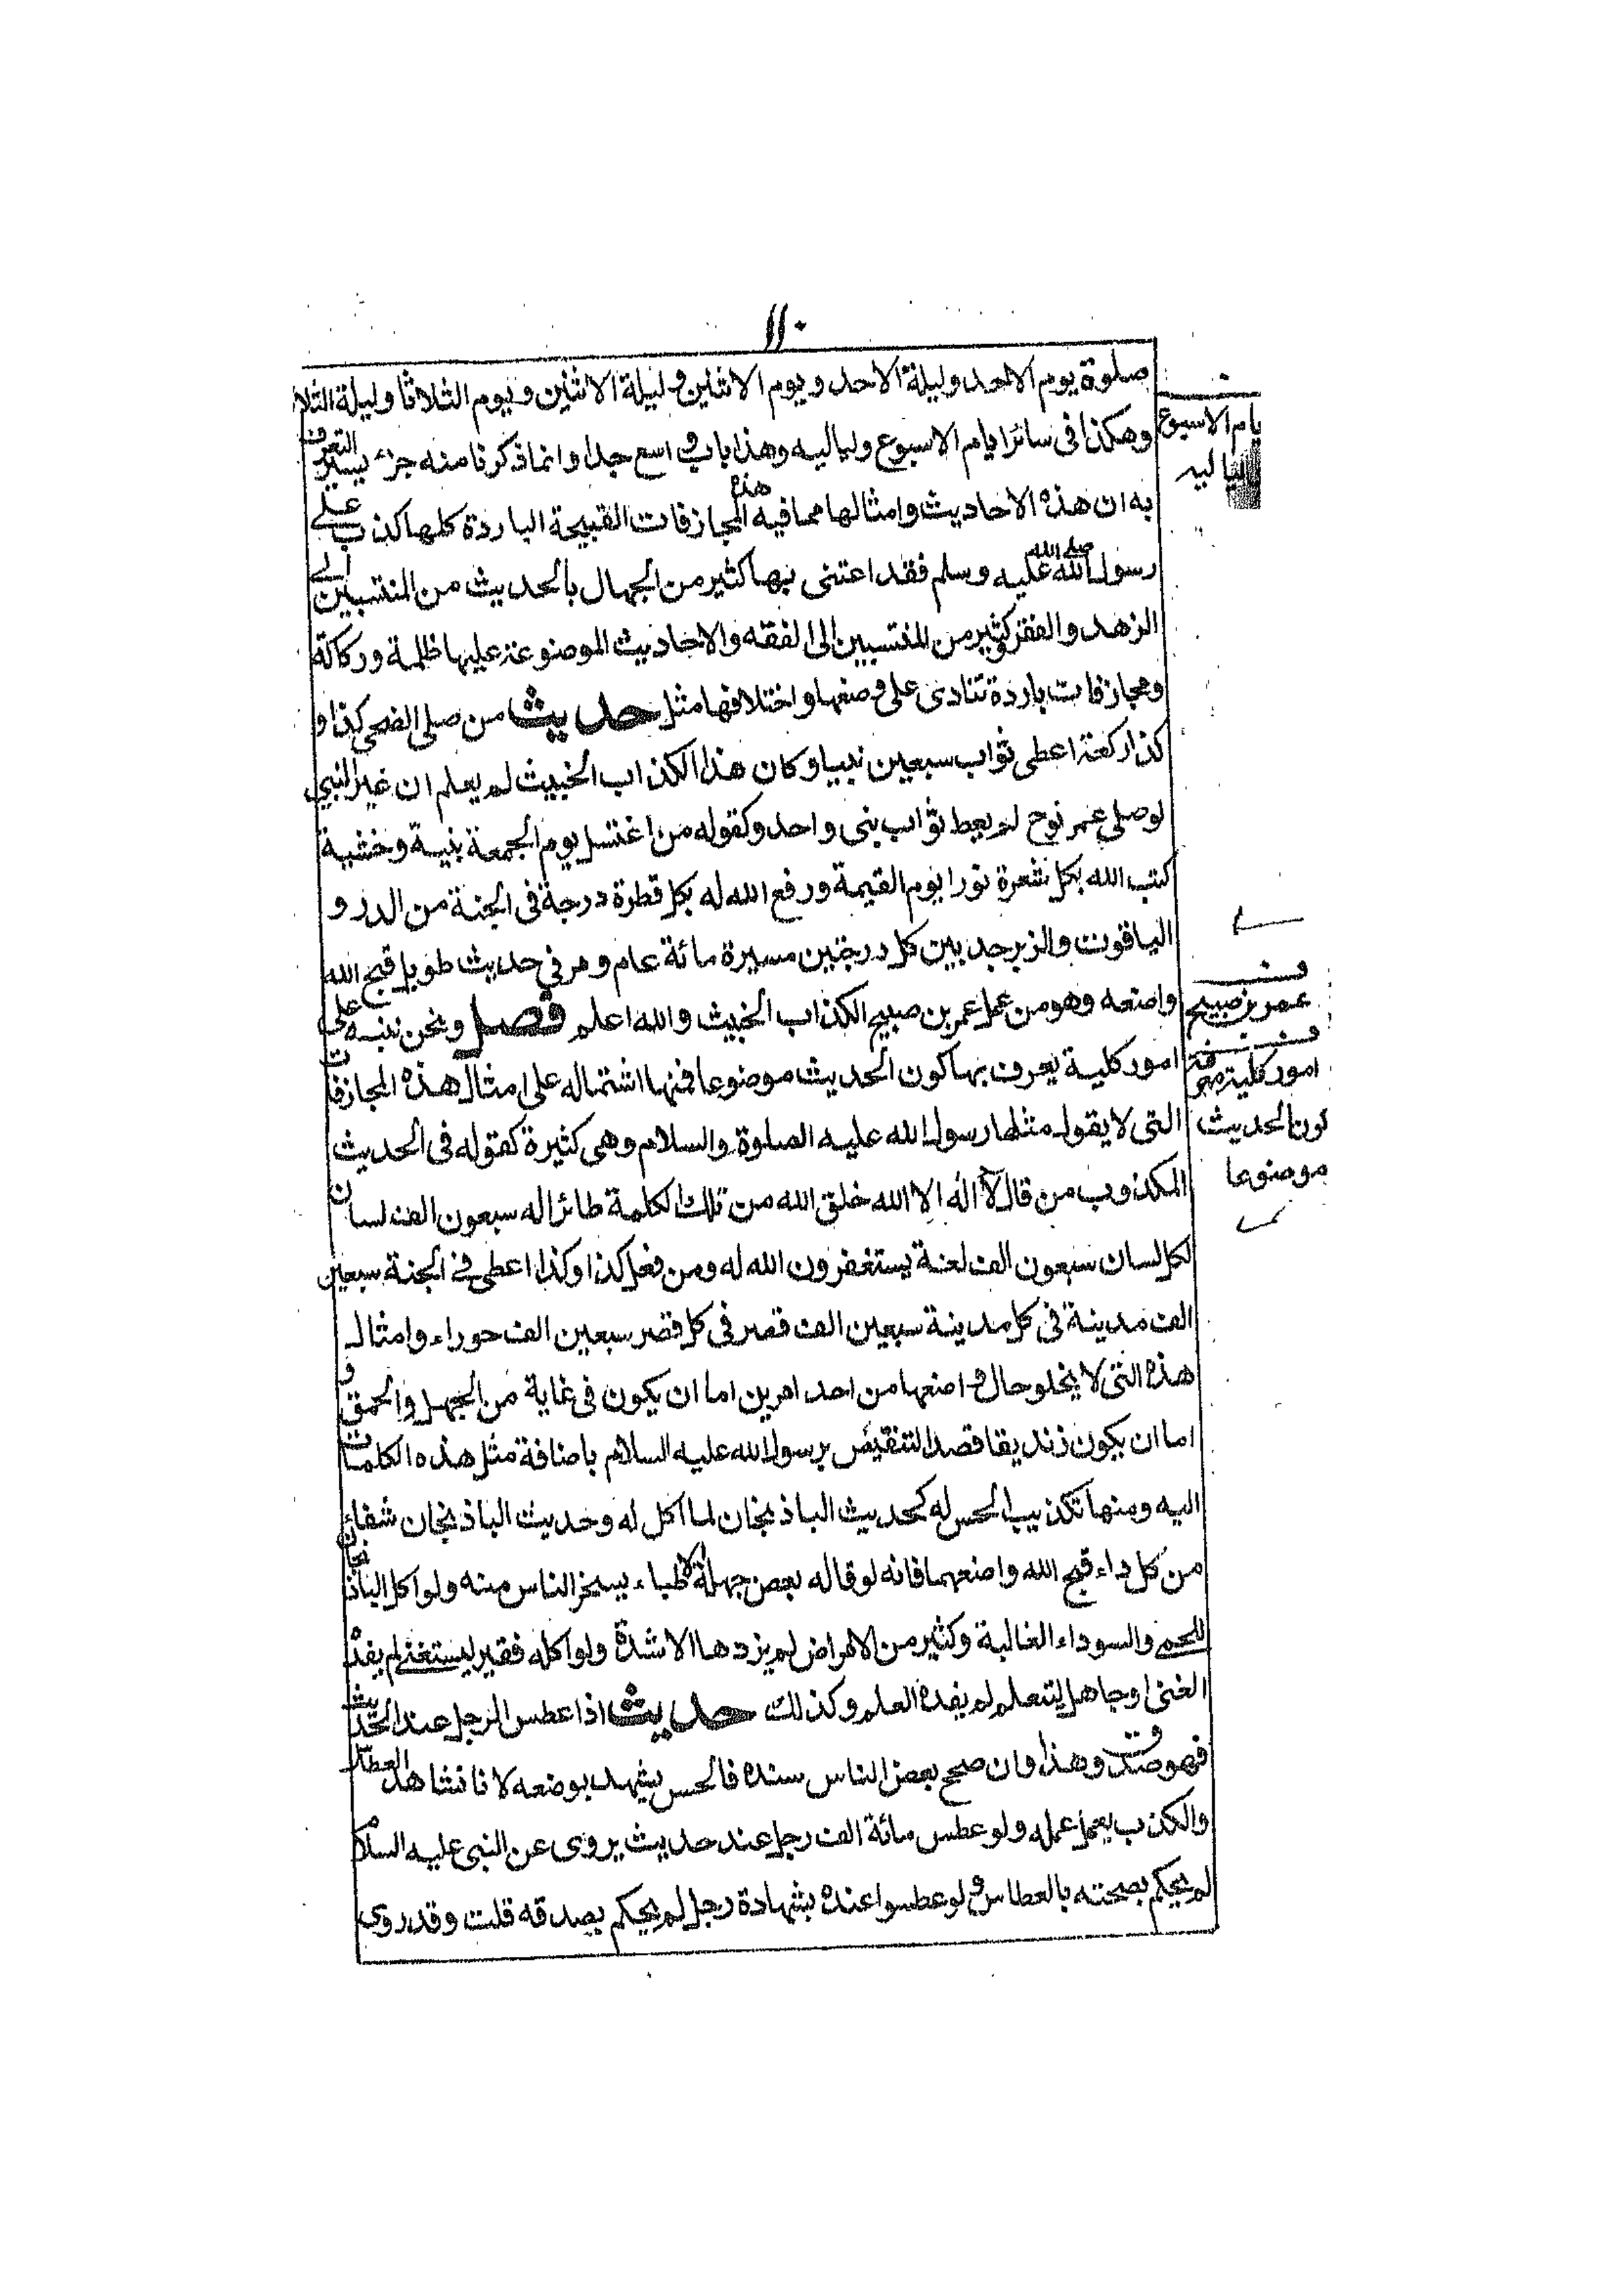 ١١٠
صلوة يوم الاحد وليلة الاحد ويوم الاثنين وليلة الاثنين ويوم الثلاثا وليلة الثلا
وهكذا فى سائر ايام الاسبوع ولياليه وهذا باب واسع جدا وانما ذكرنا منه جزء يسير التعرف
به ان هذه الاحاديث وامثالها مما فيه هذه المجازفات القبيحة الباردة كلها كذب على
رسول الله صلى الله عليه وسلم فقد اعتنى بها كثير من الجهال بالحديث من المنتسبين الى
الزهد والفقر وكثير من المنتسبين الى الفقه والاحاديث الموضوعة عليها ظلمة وركاكة
ومجازفات باردة تنادى على وضعها واختلافها مثل حديث من صلى الضحى كذا و
كذا ركعة اعطى ثواب سبعين نبيا وكان هذا الكذاب الخبيث لم يعلم ان غير النبي
لوصلى عمر نوح لم يعط ثواب بنى واحد وكقوله من اغتسل يوم الجمعة بنية وخشية
كتب الله بكل شعرة نورا يوم القيمة ورفع الله له بكل قطرة درجة فى الجنة من الدر و
الياقوت والزبرجد بين كل درجتين مسيرة مائة عام ومر في حديث طويل قبح الله
واضعه وهو من عمل عمر بن صبيح الكذاب الخبيث والله اعلم فصل ونحن ننبه على
امور كلية يعرف بها كون الحديث موضوعا فمنها اشتماله على امثال هذه المجازفات
التى لا يقول مثلها رسول الله عليه الصلوة والسلام وهى كثيرة كقوله فى الحديث
المكذوب من قال لا اله الا الله خلق الله من تلك الكلمة طائرا له سبعون الف لسان
لكل لسان سبعون الف لغة يستغفرون الله له ومن فعل كذا وكذا اعطى فى الجنة سبعين
الف مدينة فى كل مدينة سبعين الف قصر فى كل قصر سبعين الف حوراء وامثال
هذه التى لا يخلو حال واضعها من احد امرين اما ان يكون فى غاية من الجهل والحمق و
اما ان يكون زنديقا قصد التنقيص برسول الله عليه السلام باضافة مثل هذه الكلمات
اليه ومنها تكذيب الحس له كحديث الباذنجان لما اكل له وحديث الباذنجان شفاء
من كل داء قبح الله واضعهما فانه لو قاله بعض جهلة الاطباء يسخر الناس منه ولو اكل الباذنجان
للحمى والسوداء الغالبة وكثير من الامراض لم يزدها الا شدة ولو اكله فقير ليستغنى لم يفده
الغنى او جاهل ليتعلم لم يفده العلم وكذلك حديث اذا عطس الرجل عند الحديث
فهو صدق وهذا وان صحح بعض الناس سنده فالحس يشهد بوضعه لانا نشاهد العطاس
والكذب يعمل عمله ولو عطس مائة الف رجل عند حديث يروى عن النبى عليه السلام
لم يحكم بصحته بالعطاس ولو عطسوا عنده بشهادة رجل لم يحكم بصدقه قلت وقد روى
يام الاسبوع
لياليه
عمر بن صبيح
امور كلية معرفة
كون الحديث
موضوعا